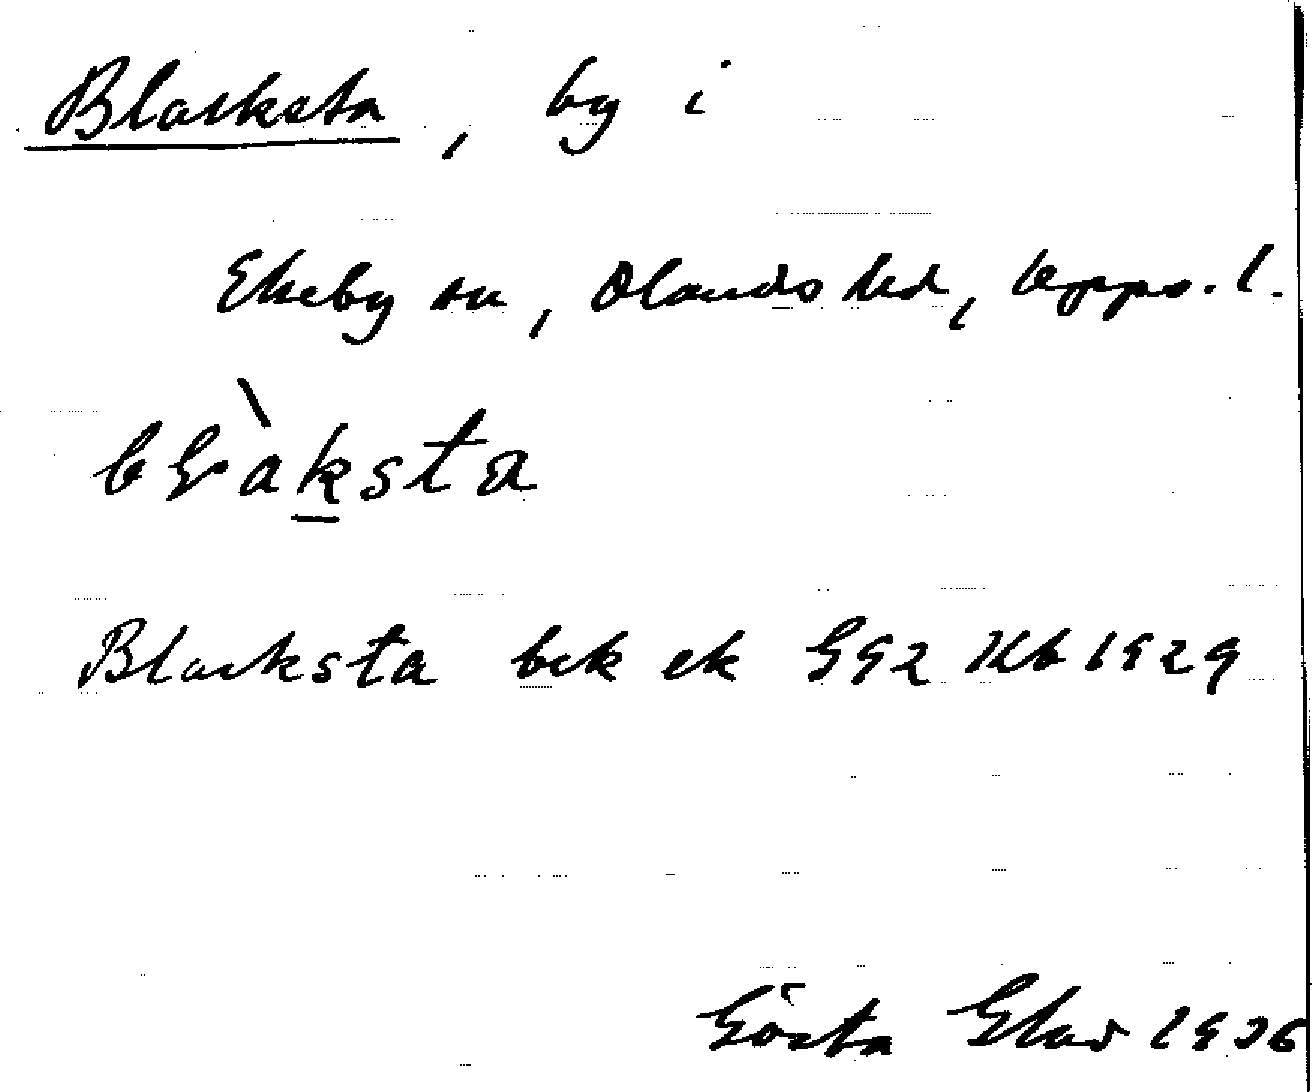 Blacksta, by i
Ekeby sn, Olands hd, Upps. l.
blàksta
Blacksta bck ek G92 Kb 1929
Gösta Elav 1936